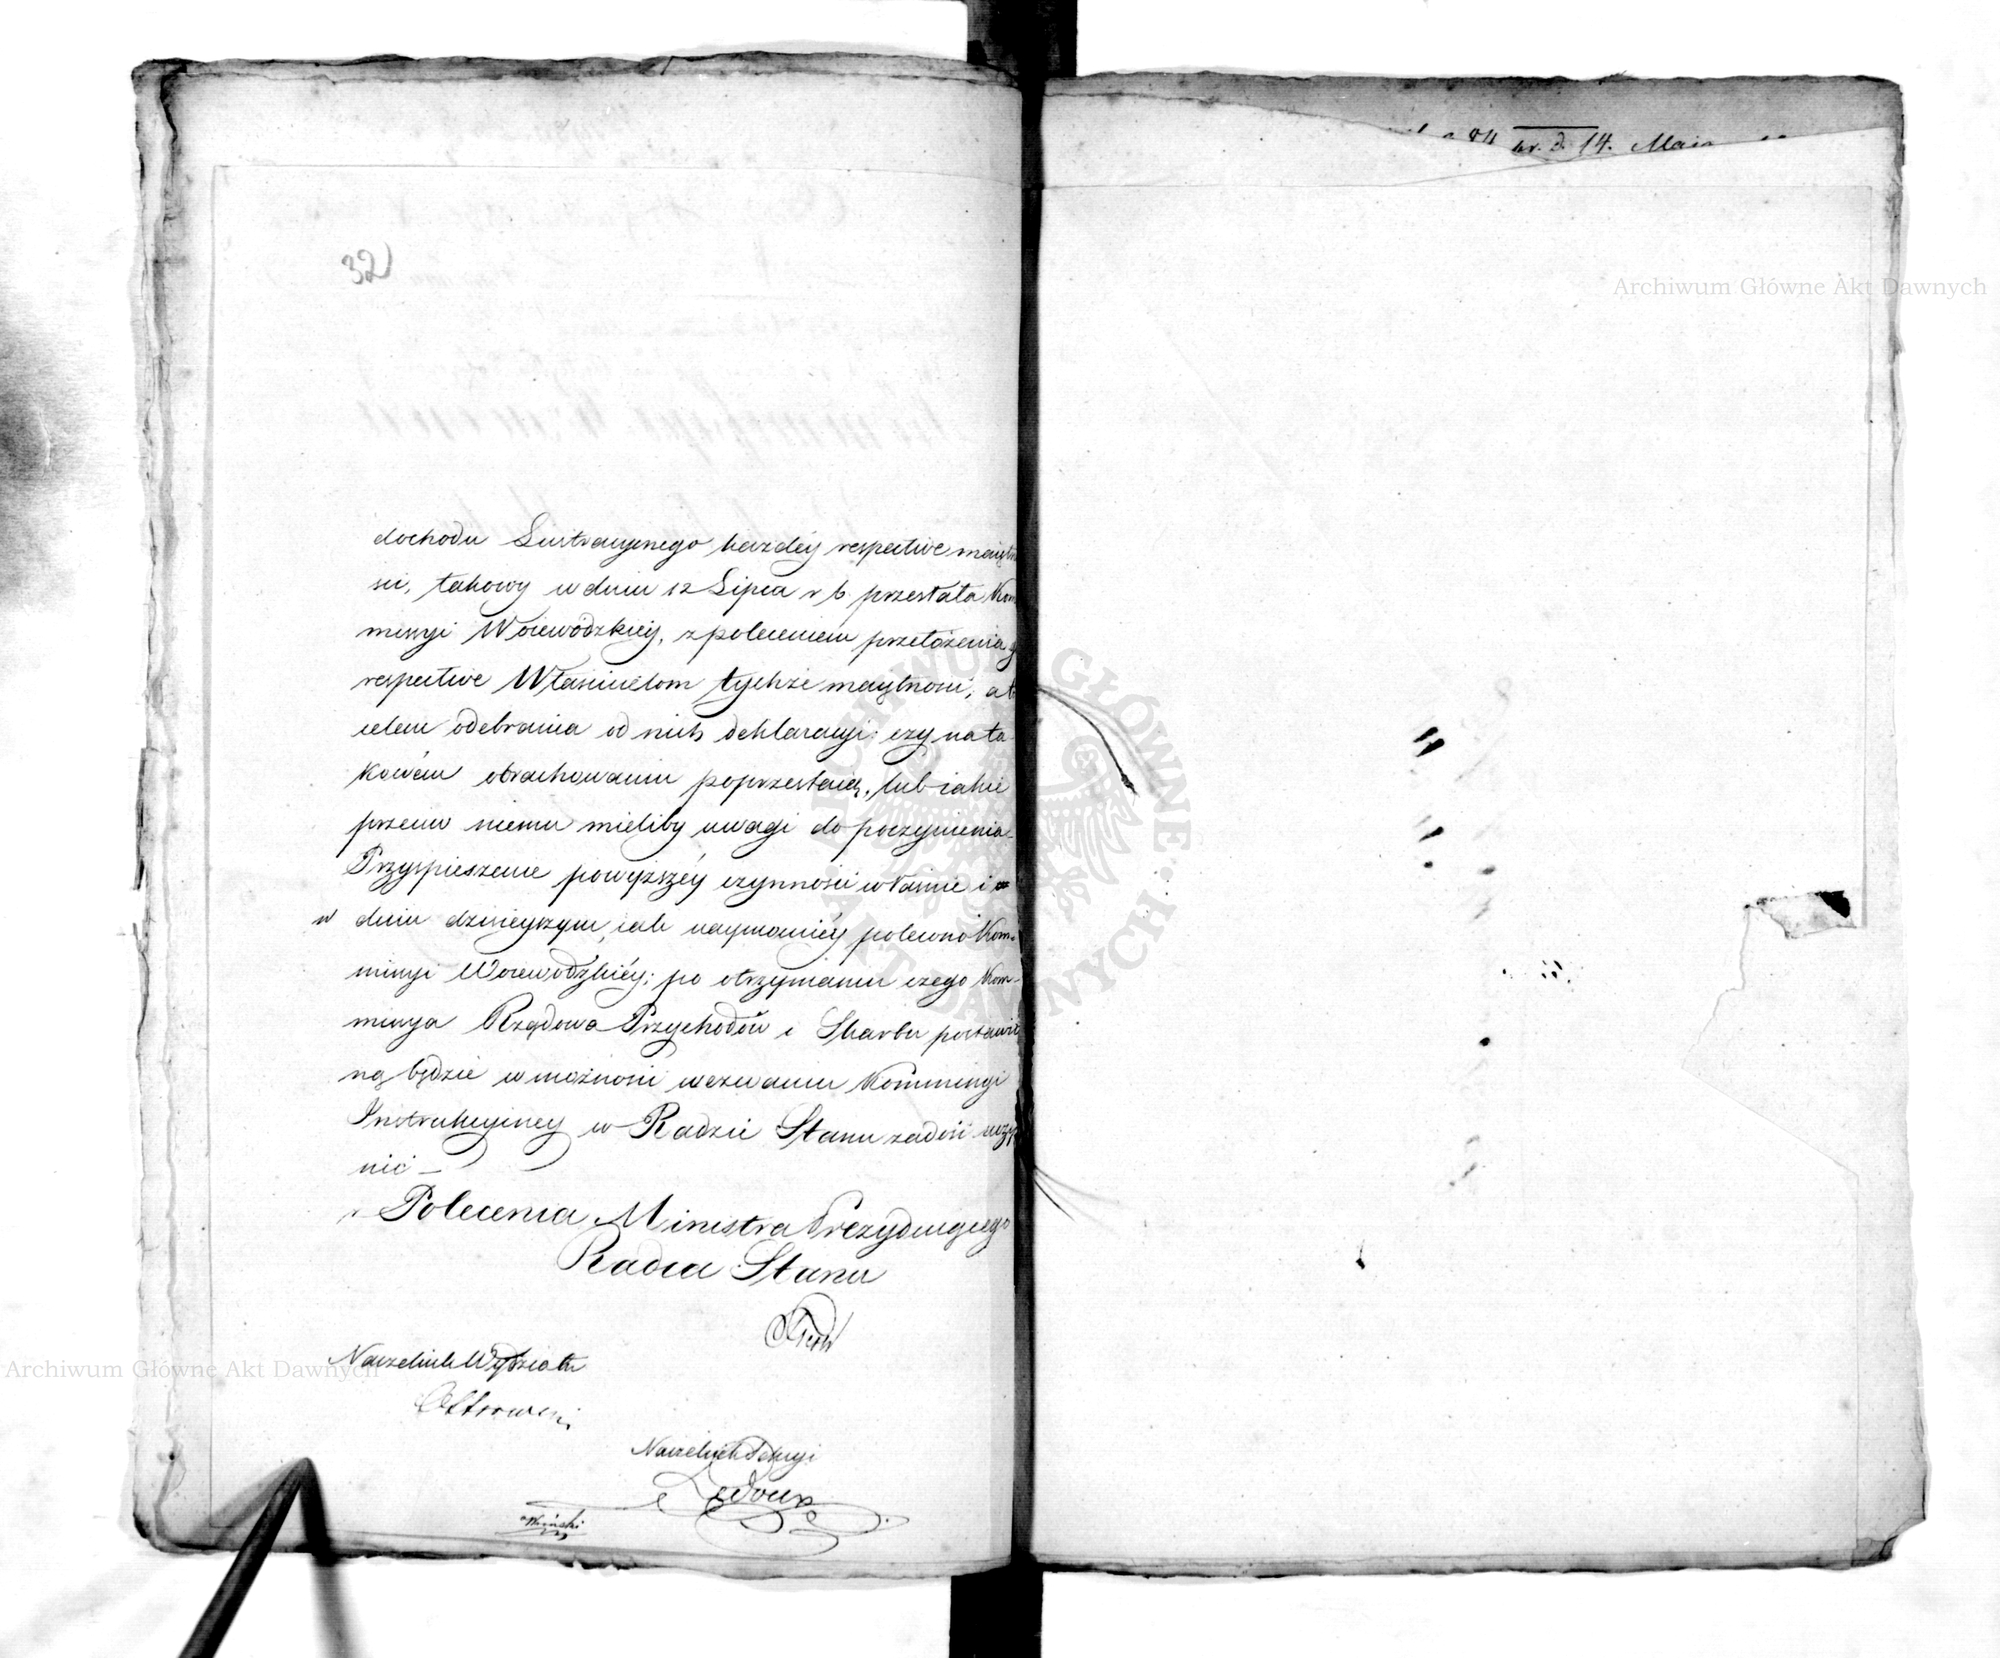 32
dochodu Lustracyinego każdéy respective maięt
ści, takowy w dniu 12 Lipca r b. przesłała Kom
missyi Woiewódzkiéy, z poleceniem przełożenia go
respective Właścicielom tychże maiętności, a to
celem odebrania od nich deklaracyi: czy na ta
kowém obrachowaniu poprzestaią, lub iakie
przeciw niemu mieliby uwagi do poczynienia.
Przyspieszenie powyższéy czynności właśnie i
w dniu dzisieyszym, iak naymocniéy polecono Kom-
missyi Woiewódzkiéy; po otrzymaniu czego Kom-
missya Rządowa Przychodów i Skarbu postawio
ną będzie w możności wezwaniu Kommissyi
Instrukcyiney w Radzie Stanu zadość uczy
nić —
z Polecenia Ministra Prezyduiącego
Radca Stanu
Naczelnik Wydziału
Ostrowski
Naczelnik Sekcyi
84 hr. d. 14.
Archiwum Główne Akt Dawnych
Archiwum Główne Akt Dawnych
ARCHIWUM GŁÓWNE AKT DAWNYCH